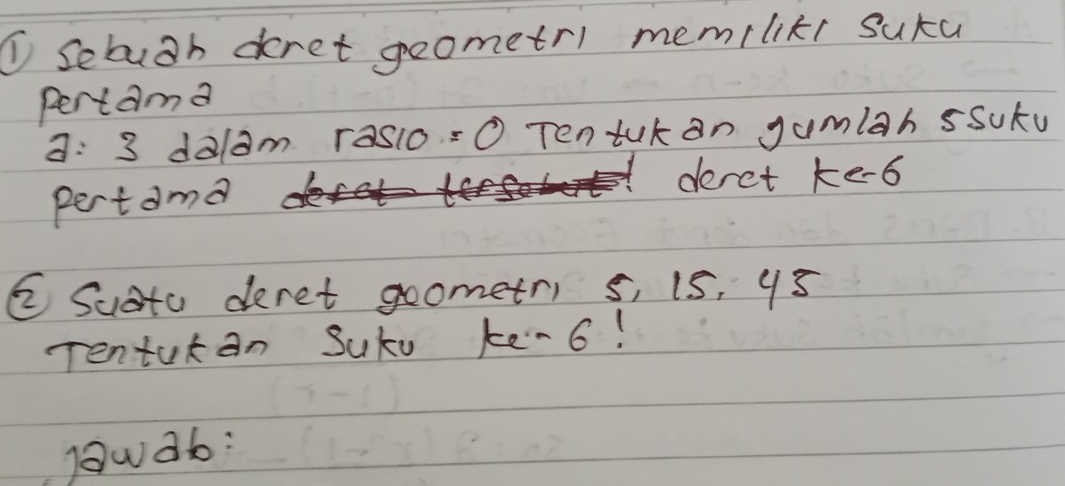 ① Sebuah deret geometri memiliki suku
pertama
a: 3 dalam rasio = 0 Tentukan gumlah 5 suku
pertama deret ke-6
② Suatu deret geometri 5, 15, 45
Tentukan Suku ke-6!
jawab: